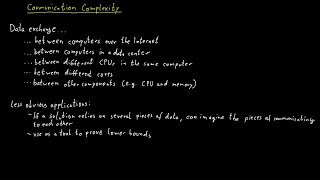 Communication Complexity
Data exchange...
... between computers over the Internet
... between computers in a data center
... between different CPUs in the same computer
... between different cores
... between other components (e.g. CPU and memory)
Less obvious applications:
- If a solution relies on several pieces of data, can imagine the pieces of communicating
to each other
- use as a tool to prove lower bounds